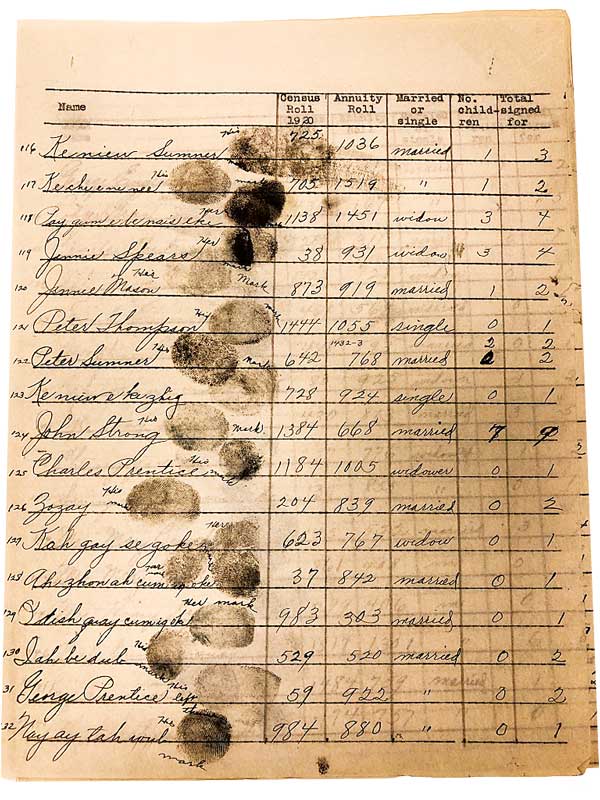 Name Census Roll 1920 Annuity Roll Married or single No. child-ren Total signed for
116 Keniew Sumner His mark 725 1036 married 1 3
117 His mark 705 1519 " 1 2
118 Her 1138 1451 widow 3 4
119 Jennie Spears Her mark 38 931 widow 3 4
120 Jennie Mason Her Mark 873 919 married 1 2
121 Peter Thompson His mark 1444 1055 single 0 1
1432-3 2 2
122 Peter Sumner His Mark 642 768 married 2
123 728 924 single 0 1
124 John Strong His mark 1384 668 married 7 9
125 Charles Prentice His mark 1184 1005 widower 0 1
126 Zozay His mark 204 839 married 0 2
127 Kah gay se goke Her 623 767 widow 0 1
128 Ah zhon ah cum ig oke her mark 37 842 married 0 1
129 Her mark 983 303 married 0 1
130 mark 529 520 married 0 2
31 George Prentice His left 59 922 " 0 2
32 Nay ay tah wub His mark 984 880 " 0 1